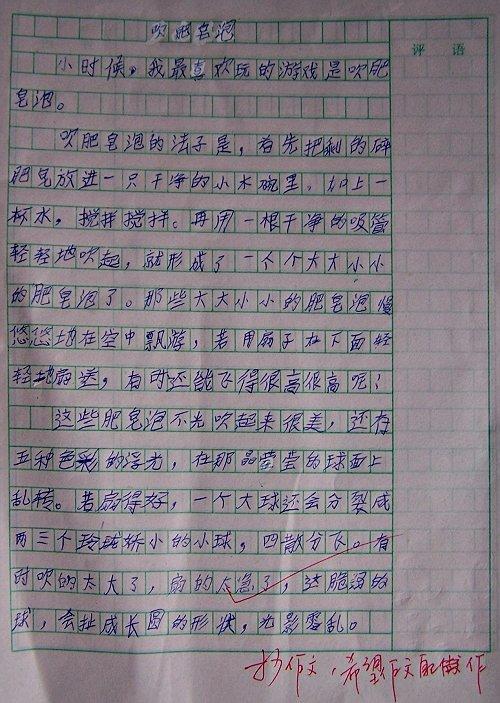 吹肥皂泡
评 语
小时候，我最喜欢玩的游戏是吹肥
皂泡。
吹肥皂泡的法子是，首先把剩的碎
肥皂放进一只干净的小木碗里，加上一
杯水，搅拌搅拌。再用一根干净的吸管
轻轻地吹起，就形成了一个个大大小小
的肥皂泡了。那些大大小小的肥皂泡慢
悠悠地在空中飘游，若用扇子在下面轻
轻地扇送，有时还能飞得很高很高呢！
这些肥皂泡不光吹起来很美，还有
五种色彩的浮光，在那晶莹莹的球面上
乱转。若扇得好，一个大球还会分裂成
两三个玲珑娇小的小球，四散分飞。有
时吹的太大了，扇的太急了，这脆薄的
球，会扯成长圆的形状，光影零乱。
抄作文，希望作文配做作